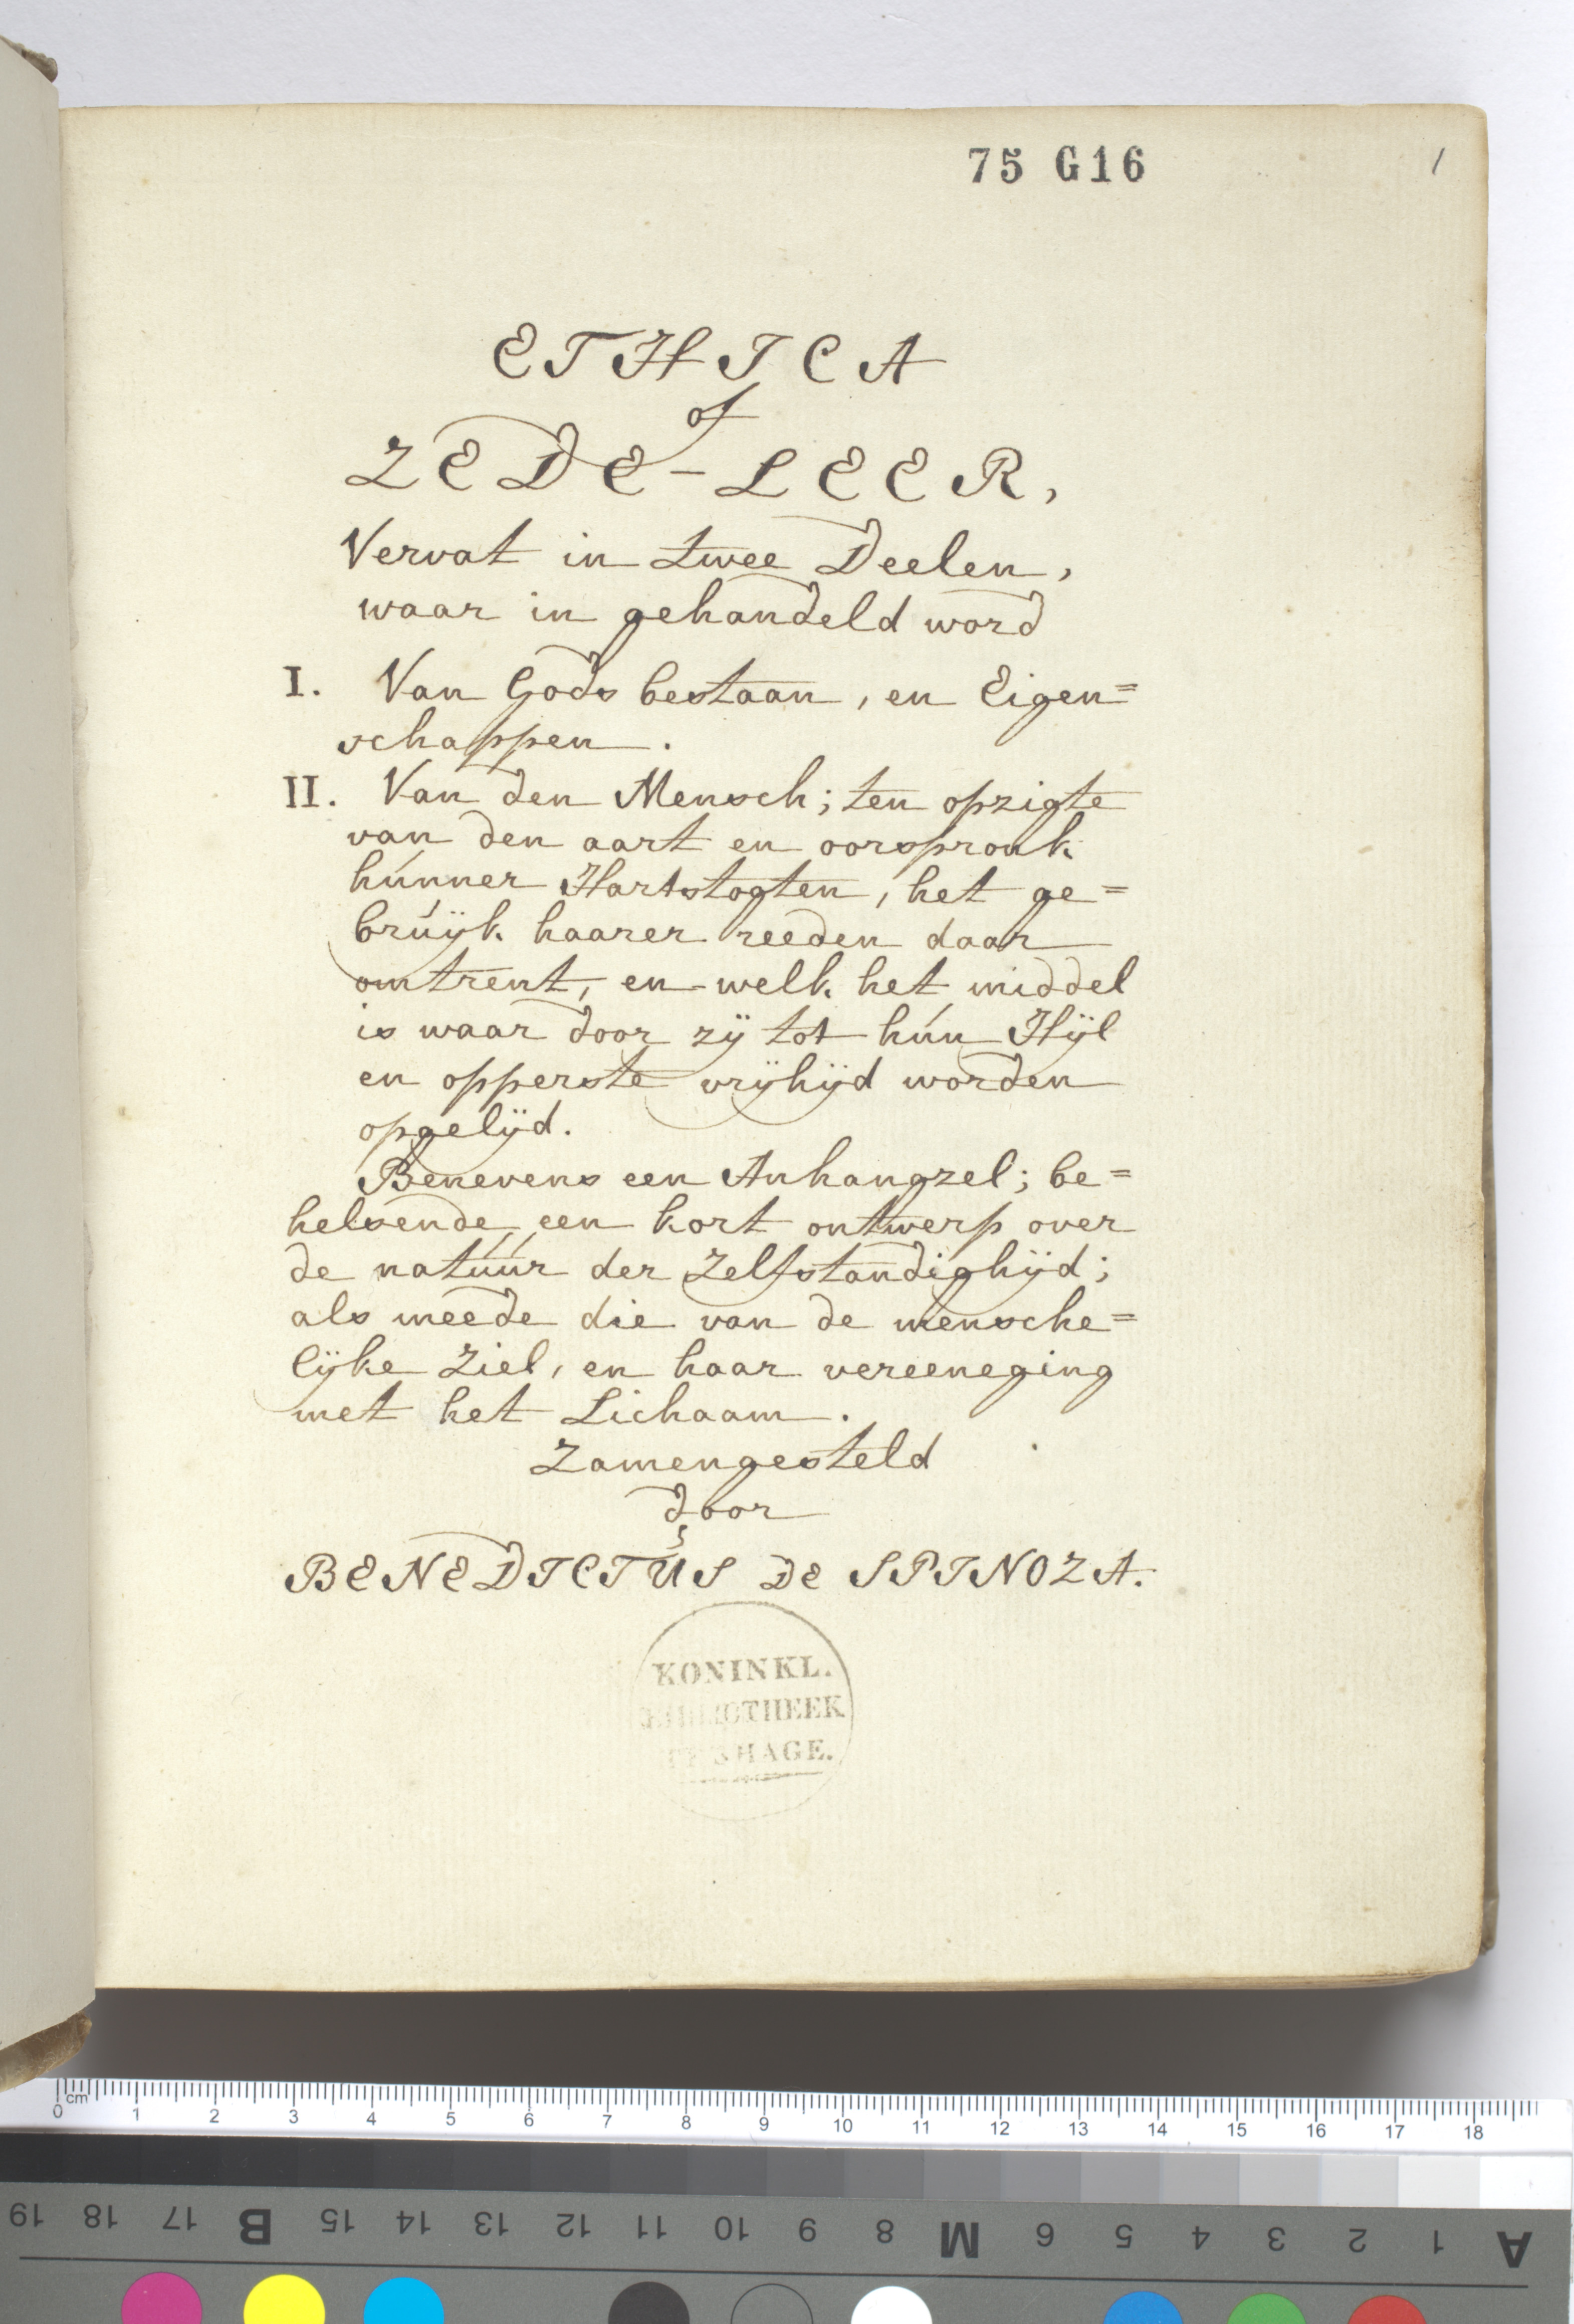 75 G16
1
ETHICA
of
ZEDE-LEER,
Vervat in twee Deelen,
waar in gehandeld word
I. Van Gods bestaan, en Eigen=
schappen.
II. Van den Mensch; ten opzigte
van den aart en oorspronk
húnner Hartstogten, het ge=
brúÿk haarer reeden daar
omtrent, en welk het middel
is waar door zÿ tot hún Hÿl
en opperste vrÿhÿd worden
opgelÿd.
Benevens een Anhangzel; be=
helsende een kort ontwerp over
de natúúr der Zelfstandighÿd;
als meede die van de mensche=
lÿke Ziel, en haar vereeneging
met het Lichaam.
Zamengesteld
door
BENEDICTUS DE SPINOZA.
KONINKL.
BIBLIOTHEEK
TE 'S HAGE.
0 cm 1 2 3 4 5 6 7 8 9 10 11 12 13 14 15 16 17 18
A 1 2 3 4 5 6 M 8 9 10 11 12 13 14 15 B 17 18 19